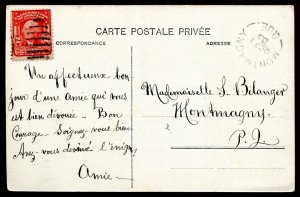 CARTE POSTALE PRIVÉE
CORRESPONDANCE
ADRESSE
MONTMAGNY
QUE.
Un affectueux bon-
jour d'une Amie qui vous
est bien dévouée – Bon
Courage – Soignez-vous bien
Avez-vous deviné l'énigme?
Amie –
Mademoiselle S. Bélanger
Montmagny
P. Q.